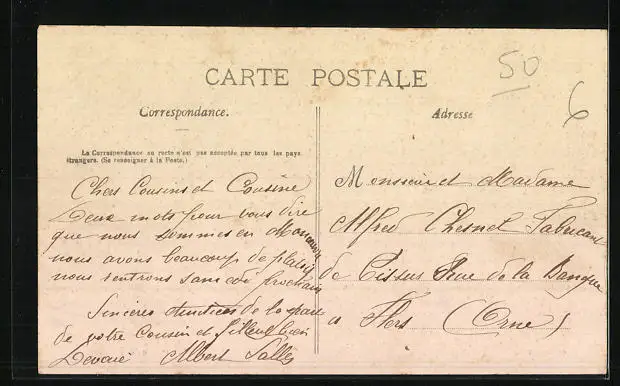 50
6
CARTE POSTALE
Correspondance.
Adresse
La Correspondance au recto n'est pas acceptée par tous les pays
étrangers. (Se renseigner à la Poste.)
Chers Cousins et Cousine
Deux mots pour vous dire
que nous sommes en
nous avons beaucoup de plaisir
nous rentrons samedi prochain
Sincères de la part
de votre Cousin et
Devoué Albert Sallés
Monsieur et Madame
Alfred Chesnel Fabricant
de Tissus Rue de la Banque
a Flers (Orne)